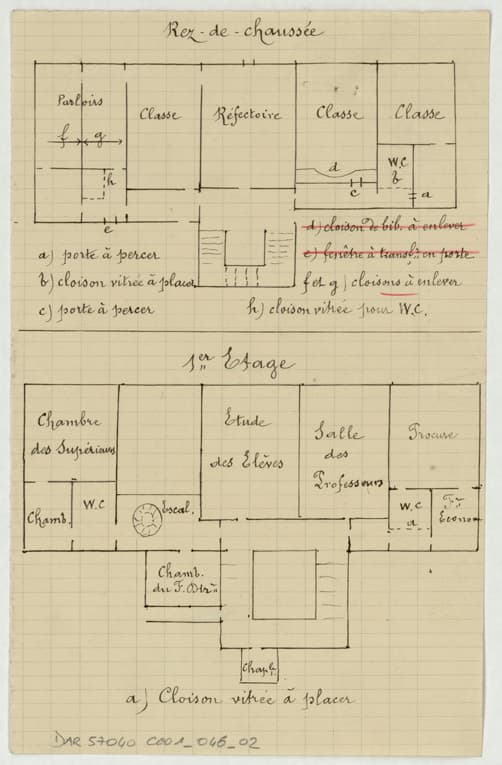 Rez-de-chaussée
Parloirs
Classe
Réfectoire
Classe
Classe
f
g
h
d
c
W.C
b
a
e
a) porte à percer
b) cloison vitrée à placer
c) porte à percer
d) cloison de bib. à enlever
e) fenêtre à transf. en porte
f et g) cloisons à enlever
h) cloison vitrée pour W.C.
1er Etage
Chambre
des Supérieurs
Etude
des Elèves
Salle
des
Professeurs
Procure
Chamb.
W.C
Escal.
W.C
a
Fr
Econo
Chamb.
du F. Dirr
Chap.
a) Cloison vitrée à placer
DAR 57040 C001_046_02